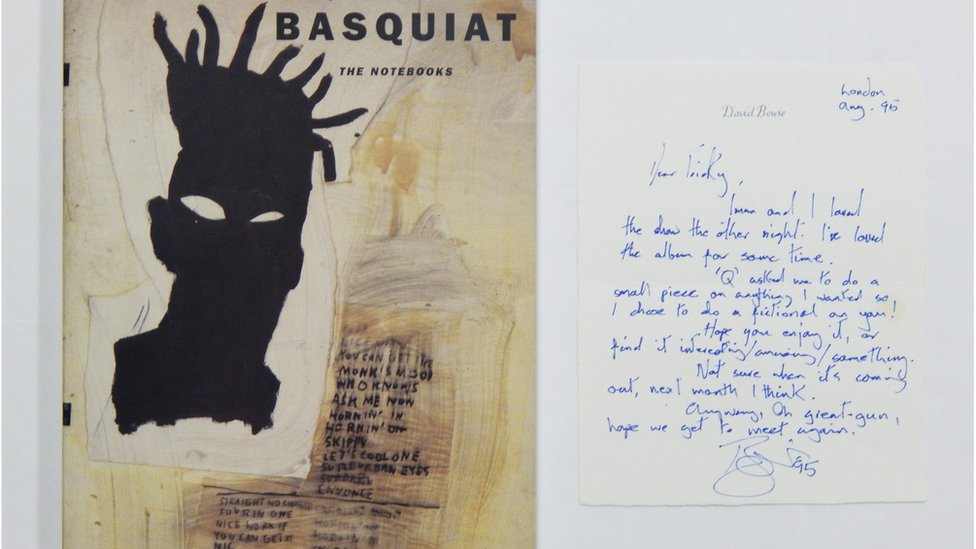 BASQUIAT
THE NOTEBOOKS
YOU CAN GET IT
MONK'S MOOD
WHO KNOWS
ASK ME NOW
HORNIN' IN
HORNIN' ON
SKIPPY
LET'S COOL ONE
SUBURBAN EYES
EVONCE
STRAIGHT NO CHASER
FOUR IN ONE
NICE WORK IF
YOU CAN GET IT
NIC
London
Aug. 95
David Bowie
Dear Tricky,
Iman and I loved
the show the other night. I've loved
the album for some time.
'Q' asked me to do a
small piece on anything I wanted so
I chose to do a fictional on you!
Hope you enjoy it, or
find it interesting/amusing/something.
Not sure when it's coming
out, next month I think.
Anyway, Oh great-gun,
hope we get to meet again.
95